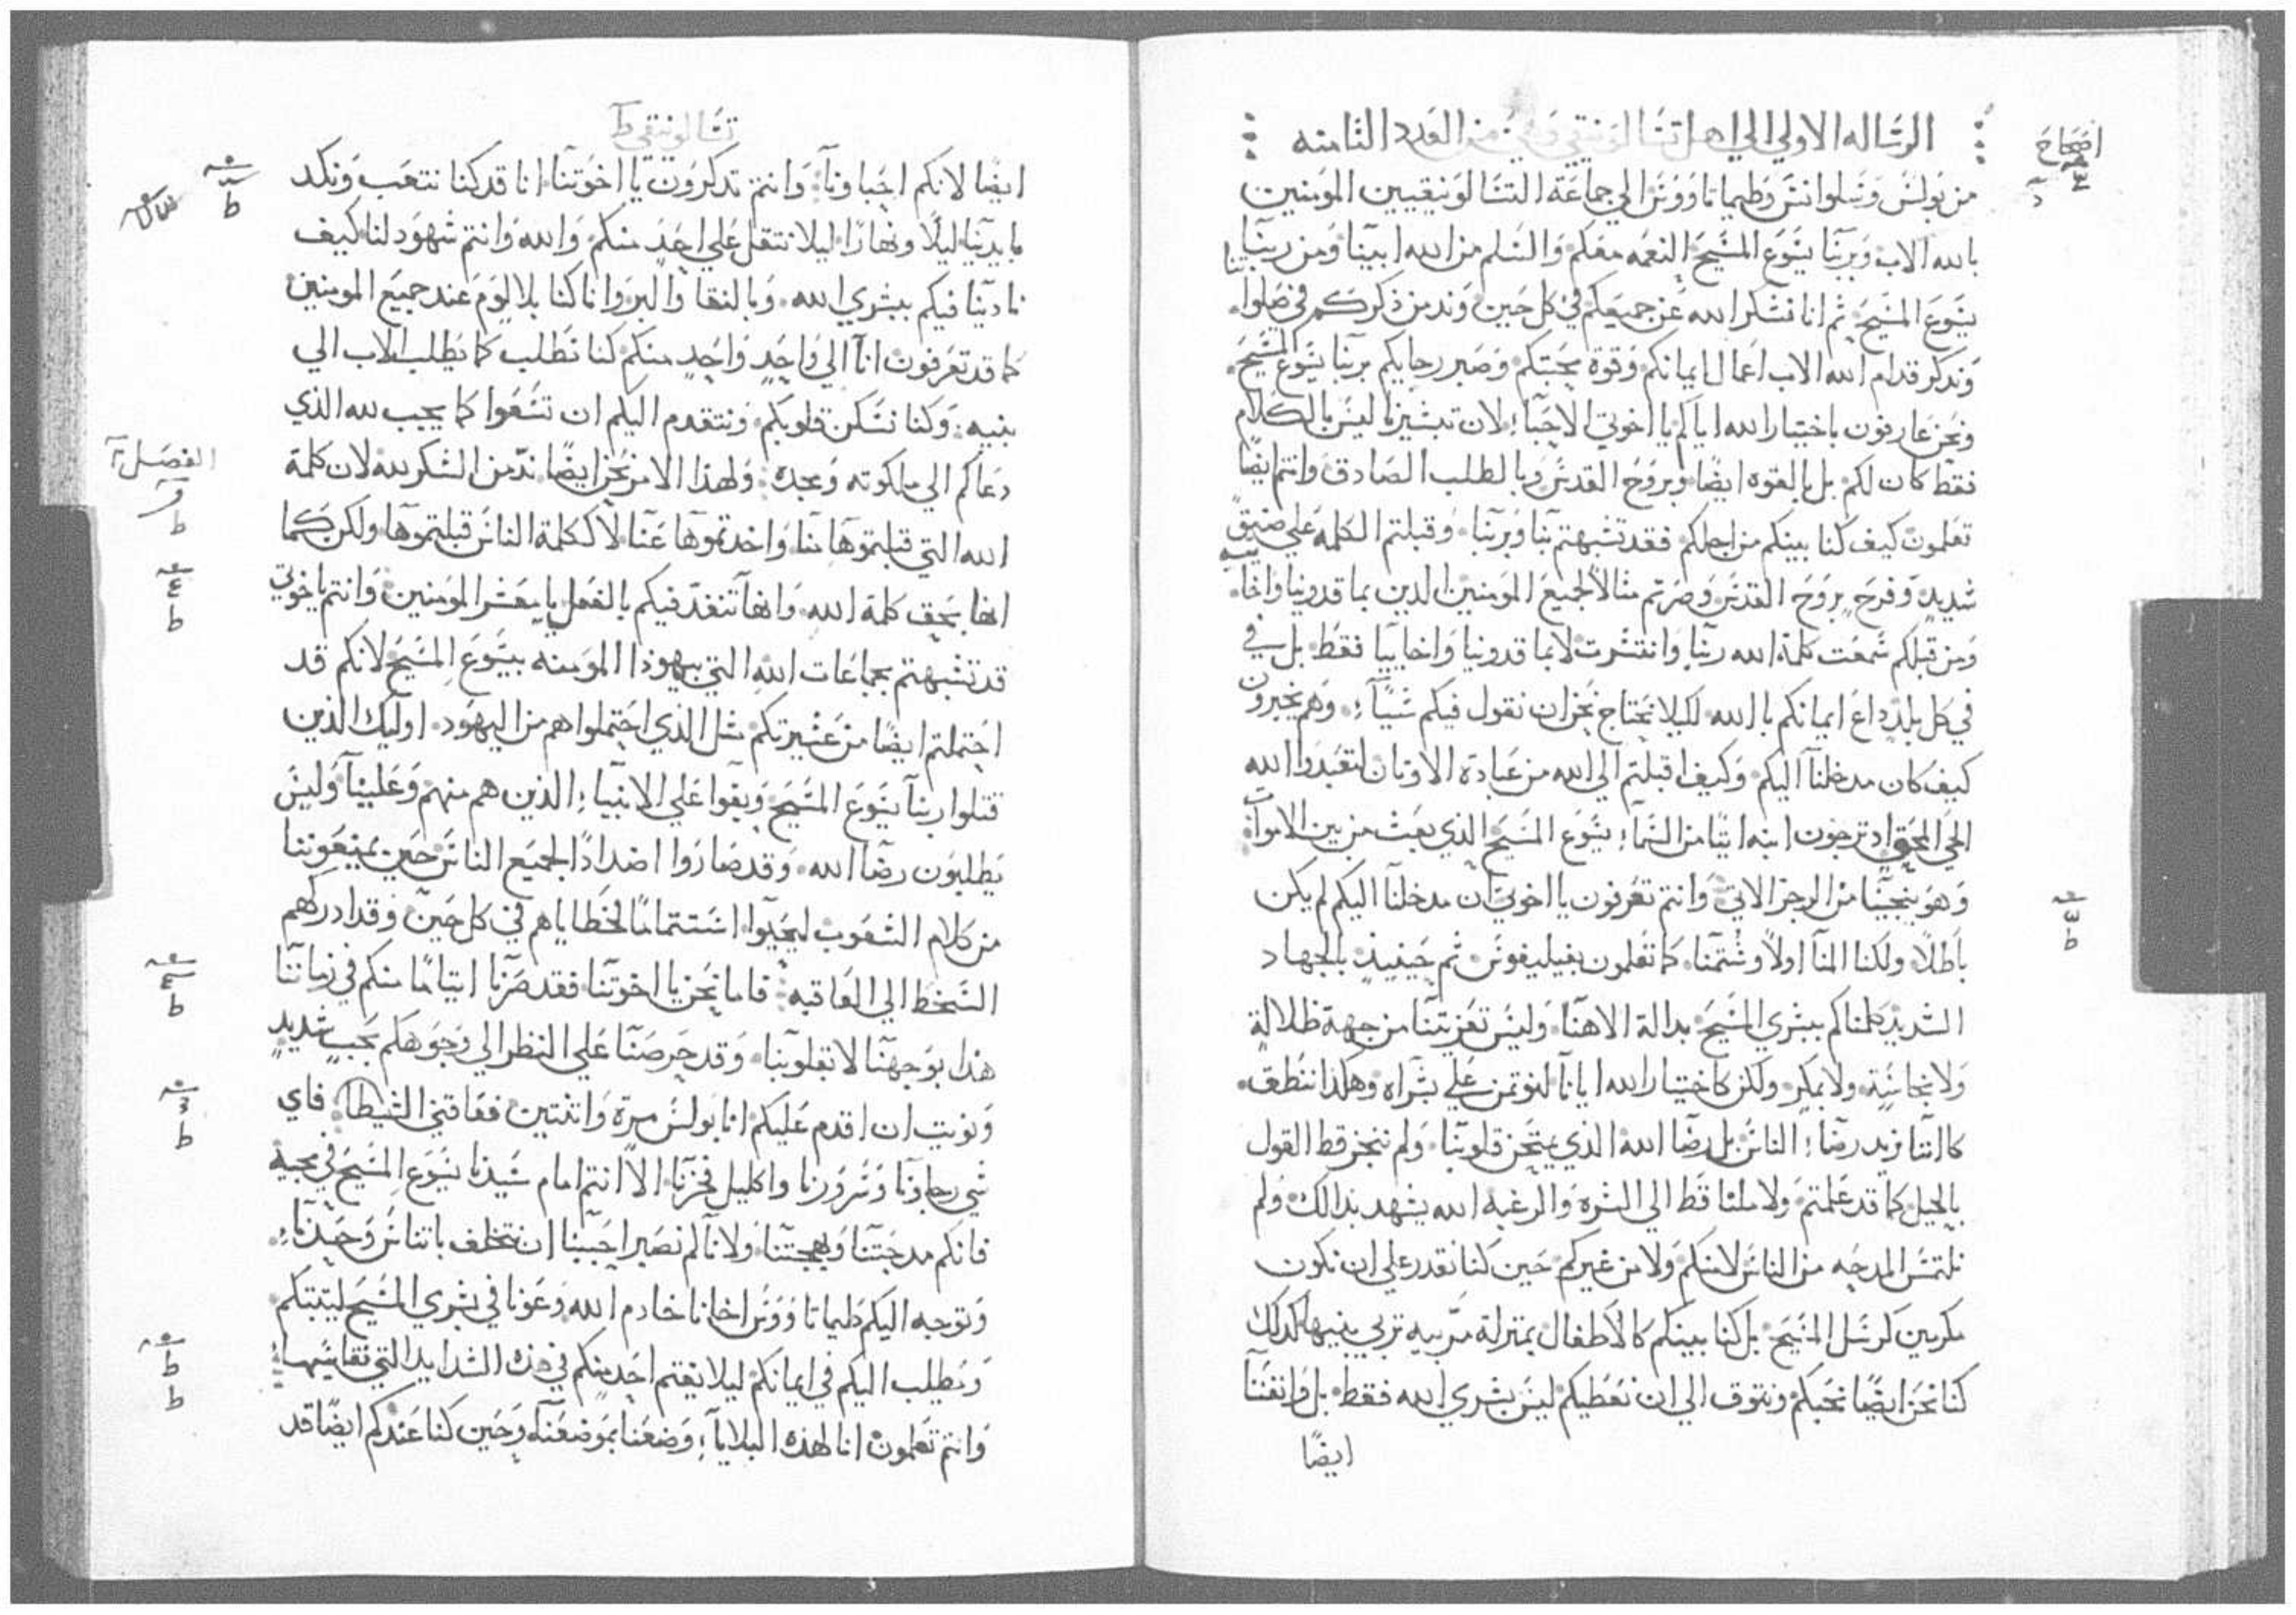 الرساله الاولي الي اهل تسالونيقي وهي من العدد الثامنه
اصحاح
من بولس وسلوانس وطيماتاووس الي جماعة التسالونيقيين المومنين
بالله الاب وبربنا يسوع المسيح النعمه معكم والسلم من الله ابينا ومن ربنا
يسوع المسيح ثم انا نشكر الله عن جميعكم في كل حين وندمن ذكركم في صلوا
ونذكر قدام الله الاب اعمال ايمانكم وقوة محبتكم وصبر رجايكم بربنا يسوع المسيح
ونحن عارفون باختيار الله اياكم يا اخوتي الاحبا لان تبشيرنا ليس بالكلام
فقط كان لكم بل بالقوه ايضا وبروح القدس وبالطلب الصادق وانتم ايضا
تعلمون كيف كنا بينكم من اجلكم فقد تشبهتم بنا وبربنا وقبلتم الكلمه علي ضيق
شديد وفرح بروح القدس وصرتم مثالا لجميع المومنين الدين بماقدونيا واخا
ومن قبلكم سمعت كلمة الله ربنا وانتشرت لا بماقدونيا واخاييا فقط بل في
في كل بلد داع ايمانكم بالله لكيلا نحتاج نحن ان نقول فيكم شيا وهم يخبرون
كيف كان مدخلنا اليكم وكيف اقبلتم الي الله من عبادة الاوتان لتعبدوا الله
الحي المحق اد ترجون ابنه اتيا من السما يسوع المسيح الذي بعث من بين الاموات
وهو ينجينا من الرجز الاتي وانتم تعرفون يا اخوتي ان مدخلنا اليكم لم يكن
باطلا ولكنا المنا اولا وشتمنا كما تعلمون بفيليفوس ثم حينيذ بالجهاد
الشديد كلمناكم ببشري المسيح بدالة الاهنا وليس تعزيتنا من جهة ظلالة
ولا نجاسة ولا بمكر ولكن كاختيار الله ايانا لنوتمن علي بشراه وهكذا ننطق
كاننا نريد رضا الناس بل رضا الله الذي يمتحن قلوبنا ولم ننجز قط القول
بالحيل كما قد علمتم ولا ملنا قط الي الشره والرغبه الله يشهد بدالك ولم
نلتمس المدحه من الناس لا منكم ولا من غيركم حين كنا نقدر علي ان نكون
مكرمين كرسل المسيح بل كنا بينكم كالاطفال بمنزلة مربيه تربي بنيها كدلك
كنا نحن ايضا نحبكم ونتوق الي ان نعطيكم ليس بشري الله فقط بل وانفسنا
ايضا
تسالونيقي
ايضا لانكم احباونا وانتم تدكرون يا اخوتنا انا قد كنا نتعب ونكد
بايدينا ليلا ونهارا ليلا نتقل علي احد منكم والله وانتم شهود لنا كيف
نادينا فيكم ببشري الله وبالنقا والبر وانا كنا بلا لوم عند جميع المومنين
كما قد تعرفون انا الي واحد واحد منكم كنا نطلب كما يطلب الاب الي
بنيه وكنا نسكن قلوبكم ونتقدم اليكم ان تسعوا كما يجب لله الذي
دعاكم الي ملكوته ومجده ولهذا الامر نحن ايضا ندمن الشكر لله لان كلمة
الفصل
الله التي قبلتموها منا واخدتموها عنا لا ككلمة الناس قبلتموها ولكن كما
انها بحق كلمة الله وانها تنفد فيكم بالفعل يا معشر المومنين وانتم يا خوتي
قد تشبهتم بجماعات الله التي بيهوذا المومنه بيسوع المسيح لانكم قد
احتملتم ايضا من عشيرتكم مثل الذي احتملوا هم من اليهود اوليك الذين
قتلوا ربنا يسوع المسيح وبغوا علي الانبيا الذين هم منهم وعلينا وليس
يطلبون رضا الله وقد صاروا اضدادا لجميع الناس حين يمنعوننا
من كلام الشعوب ليحيوا استتماما لخطاياهم في كل حين وقد ادركهم
السخط الي العاقبه فاما نحن يا اخوتنا فقد صرنا ايتاما منكم في زماننا
هذا بوجهنا لا بقلوبنا وقد حرصنا علي النظر الي وجوهكم بحب شديد
ونويت ان اقدم عليكم انا بولس مرة واثنتين فعاقني الشيطان فاي
شي رجاونا وسرورنا واكليل فخرنا الا انتم امام سيدنا يسوع المسيح في مجيه
فانكم مدحتنا وبهجتنا ولانا لم نصبر احببنا ان نتخلف باتناس وحدنا
ونوجه اليكم طيماتاووس اخانا خادم الله وعونا في بشري المسيح ليتبتكم
ويطلب اليكم في ايمانكم ليلا يغتم احد منكم في هذه الشدايد التي نقاسيها
وانتم تعلمون انا لهذه البلايا وضعنا بموضعنا وحين كنا عندكم ايضا قد